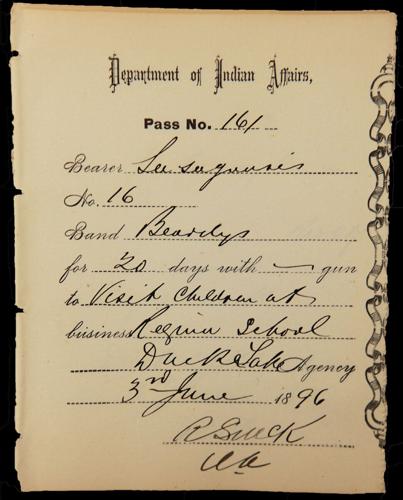 Department of Indian Affairs,
Pass No. 161
Bearer
No. 16
Band Beardys
for 20 days with — gun
to Visit Children at
business Regina School
Duck Lake Agency
3rd June 1896